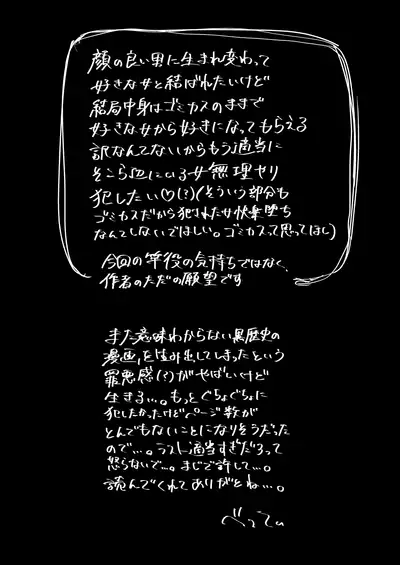 顔の良い男に生まれ変わって
好きな女と結ばれたいけど
結局中身はゴミカスのままで
好きな女から好きになってもらえる
訳なんてないからもう適当に
そこら辺にいる女無理ヤリ
犯したい♡(?)(そういう部分も
ゴミカスだから犯された女快楽堕ち
なんてしないでほしい。ゴミカスって思ってほし)
今回の竿役の気持ちではなく、
作者のただの願望です
また意味わからない黒歴史の
漫画を生み出してしまったという
罪悪感(?)がやばいけど
生きる…。もっとぐちょぐちょに
犯したかったけどページ数が
とんでもないことになりそうだった
ので…。ラスト適当すぎだろって
怒らないで…。まじで許して…。
読んでくれてありがとね…。